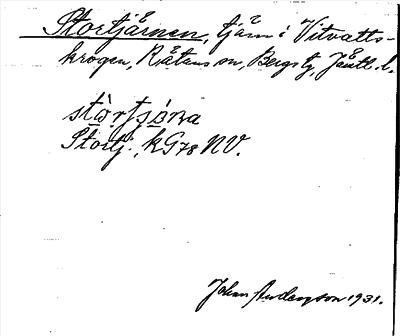 Stortjärnen, tjärn i Vitvatts-
krogen, Rätans sn, Bergs tg, Jämtl. l.
Stortj. kG78 NV.
Johan Anderzson 1931.